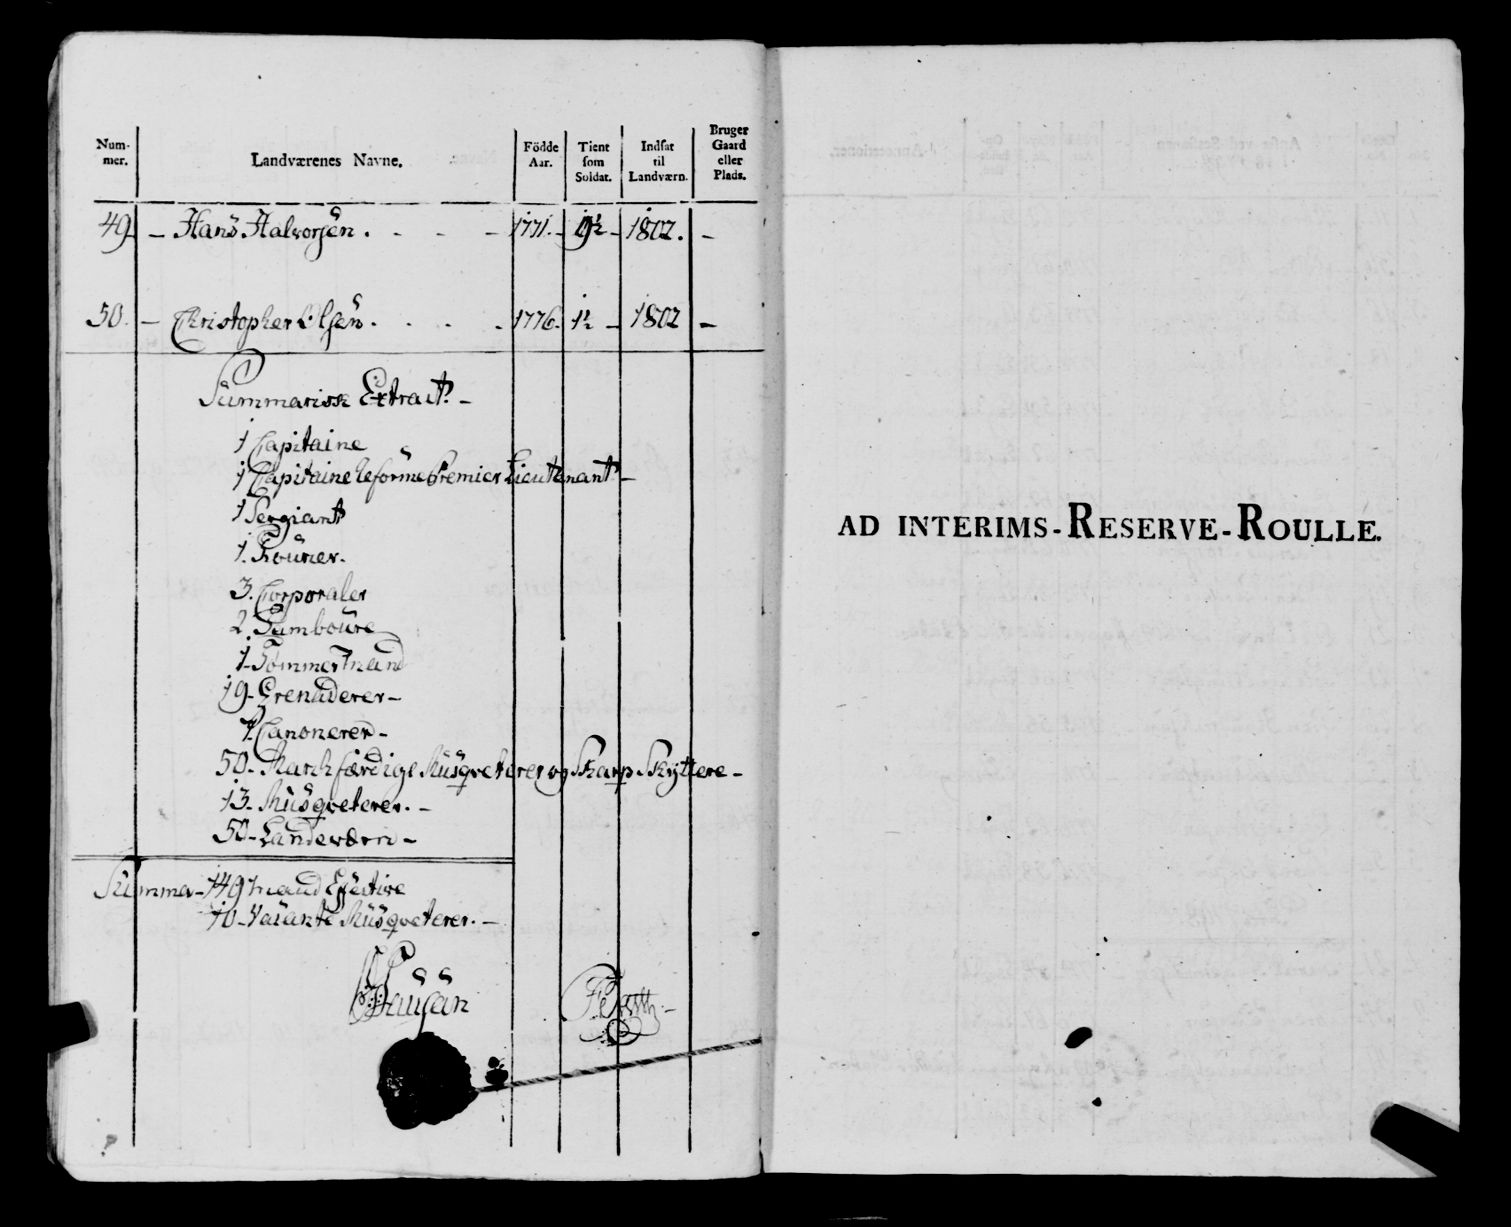 Num-
mer.
Landværenes Navne.
Födde
Aar.
Tient
som
Soldat.
Indsat
til
Landværn.
Bruger
Gaard
eller
Plads.
49. – Hans Halvorsen. - - - 1771. - 9½ - 1802. -
50. – Christopher Olsen. . . . 1776. 1½ - 1802 -
Summarisk Extract. -
1 Capitaine
1 Capitaine reforme Premier Lieutenant -
1 Sergiant
1. Fourier.
3. Corporaler
2. Tamboure
1- Tømmermand
19- Grenaderer -
7. Canonerer -
50- Marchfærdige Musqveterer og Skarp Skyttere -
13- Musqveterer. -
50- Landeværn -
Summa - 149 Mand Effective
10- Vacante Musqveterer. -
AD INTERIMS-RESERVE-ROULLE.